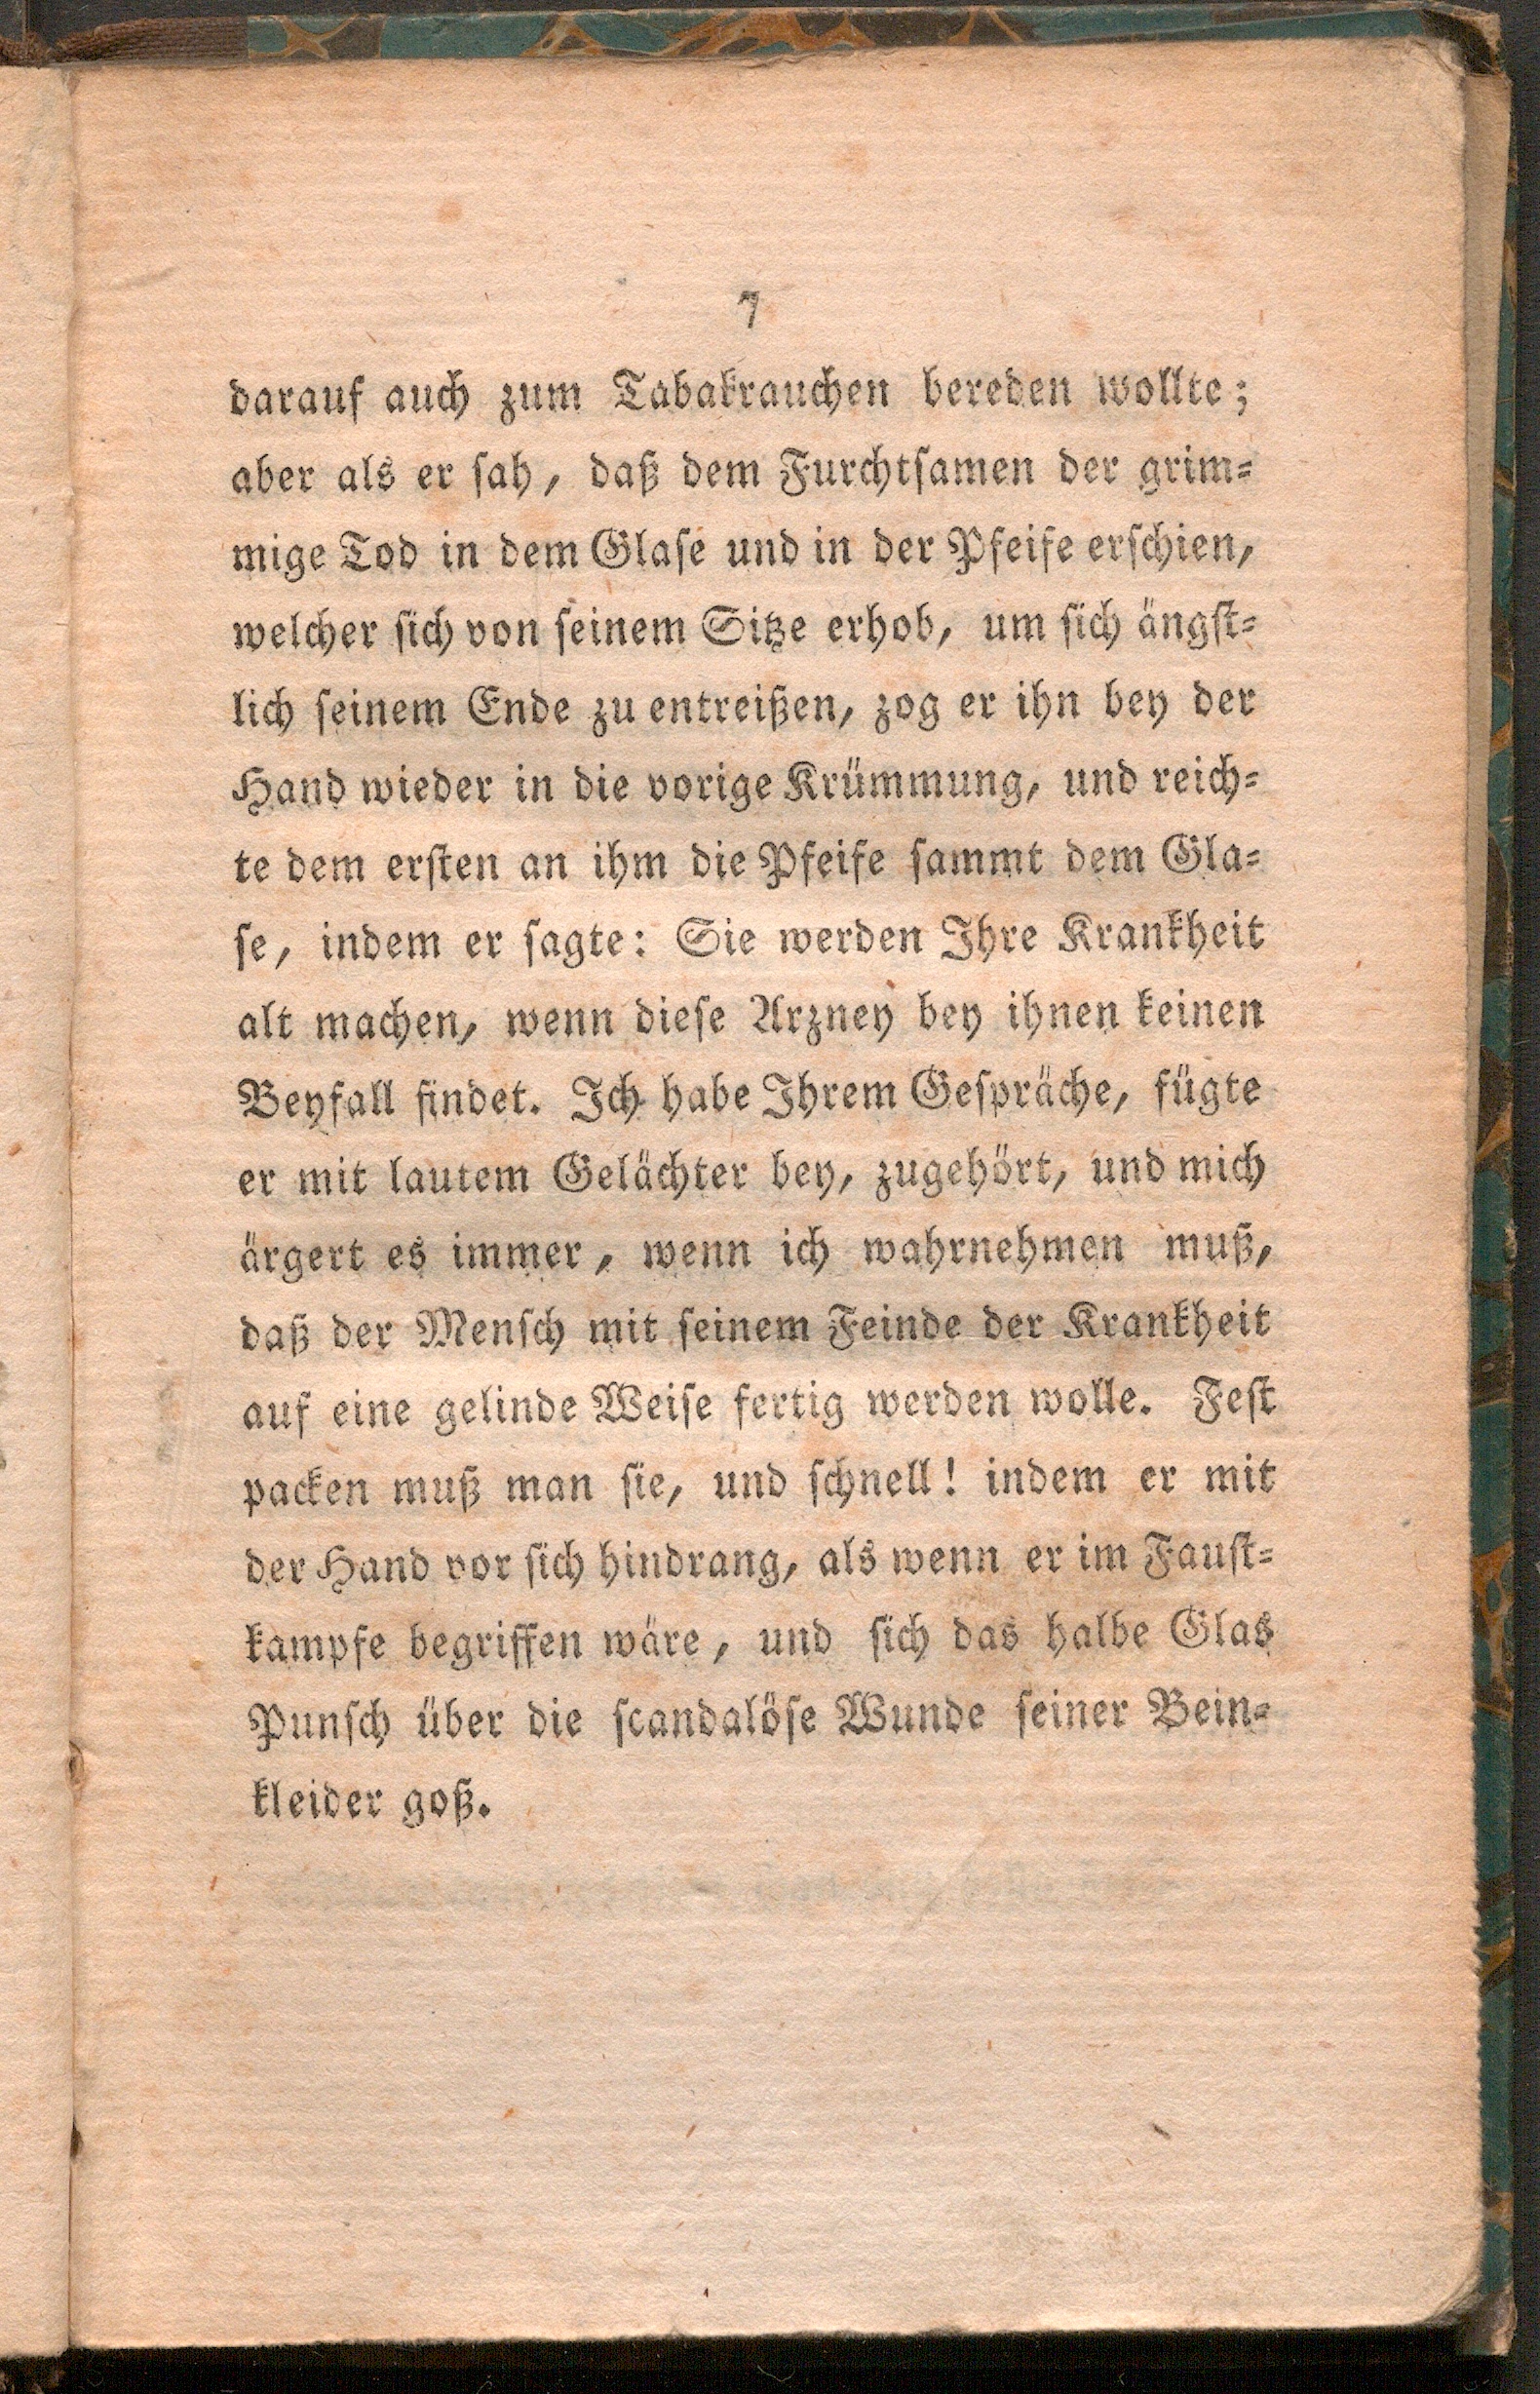 7
darauf auch zum Tabakrauchen bereden wollte;
aber als er sah, daß dem Furchtsamen der grim-
mige Tod in dem Glase und in der Pfeife erschien,
welcher sich von seinem Sitze erhob, um sich ängst-
lich seinem Ende zu entreißen, zog er ihn bey der
Hand wieder in die vorige Krümmung, und reich-
te dem ersten an ihm die Pfeife sammt dem Gla-
se, indem er sagte: Sie werden Ihre Krankheit
alt machen, wenn diese Arzney bey ihnen keinen
Beyfall findet. Ich habe Ihrem Gespräche, fügte
er mit lautem Gelächter bey, zugehört, und mich
ärgert es immer, wenn ich wahrnehmen muß,
daß der Mensch mit seinem Feinde der Krankheit
auf eine gelinde Weise fertig werden wolle. Fest
packen muß man sie, und schnell! indem er mit
der Hand vor sich hindrang, als wenn er im Faust-
kampfe begriffen wäre, und sich das halbe Glas
Punsch über die scandalöse Wunde seiner Bein-
kleider goß.